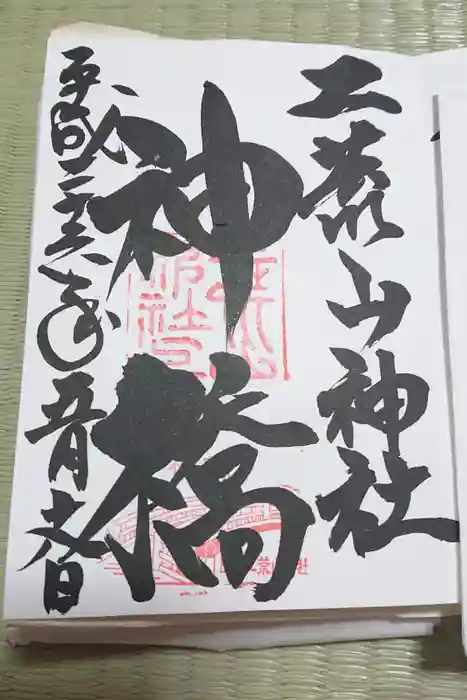 二荒山神社
神橋
平成二十六年五月
二荒山神社